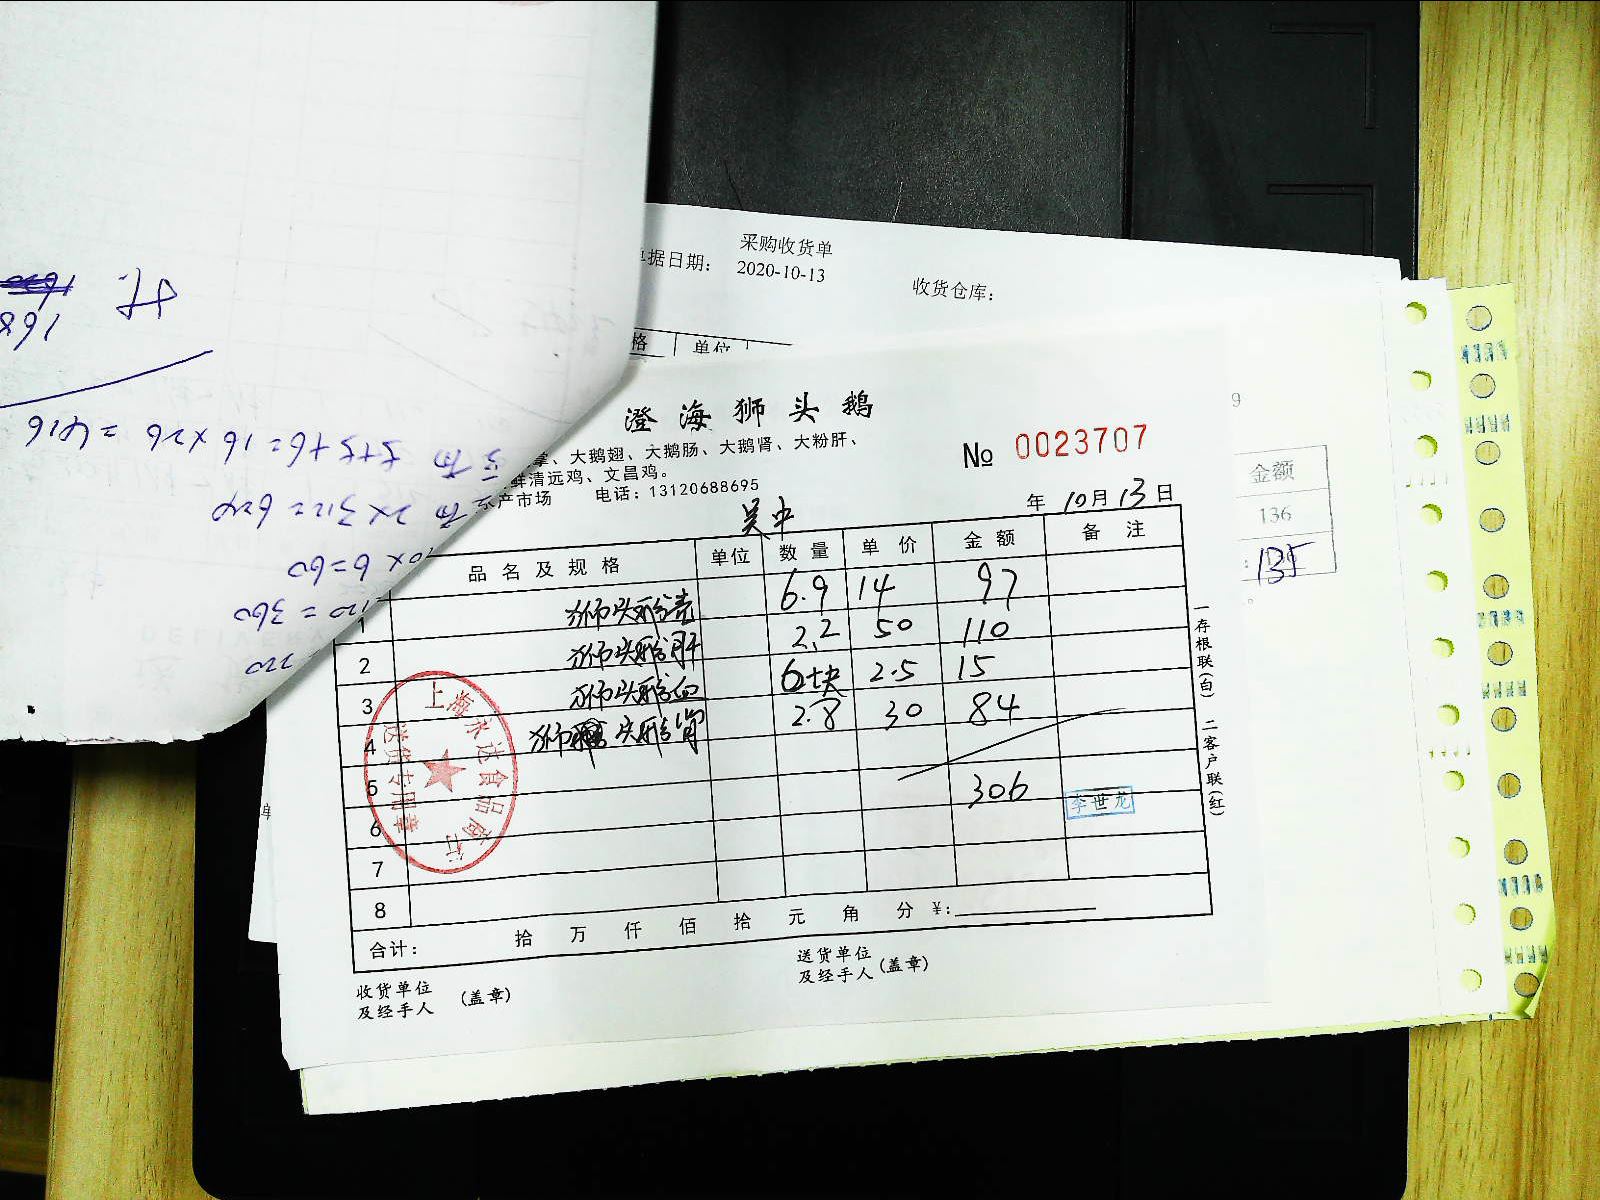 采购收货单
单据日期： 2020-10-13
收货仓库：
格 单位
澄海狮头鹅
掌、大鹅翅、大鹅肠、大鹅肾、大粉肝、
鲜清远鸡、文昌鸡。
水产市场 电话：13120688695
№ 0023707
吴中
年 10月 13日
品名及规格 单位 数量 单价 金额 备注
1 狮头鹅壳 6.9 14 97
2 狮头鹅肝 2.2 50 110
3 狮头鹅血 6块 2.5 15
4 狮头鹅肾 2.8 30 84
5
6 306 李世龙
7
8
合计： 拾 万 仟 佰 拾 元 角 分 ¥：
收货单位
及经手人 (盖章)
送货单位
及经手人 (盖章)
一存根联(白) 二客户联(红)
上海永达食品商行
送货专用章
金额
136
135
9
168
5+5+6=16×26=416
2×312=624
10×6=60
=360
220